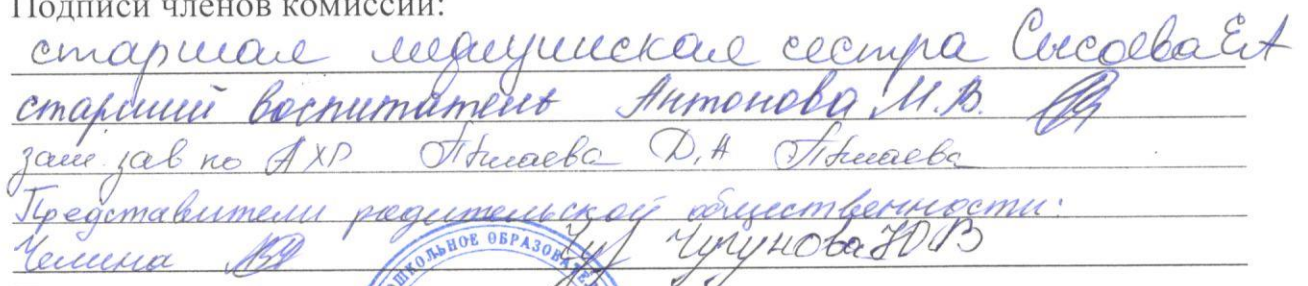 Подписи членов комиссии:
старшая медицинская сестра Сысоева ЕА
старший воспитатель Антонова М.В.
зам. зав по АХР Д.А
Представители родительской общественности:
Челина Чугунова Ю В
ШКОЛЬНОЕ ОБРАЗОВАТЕ